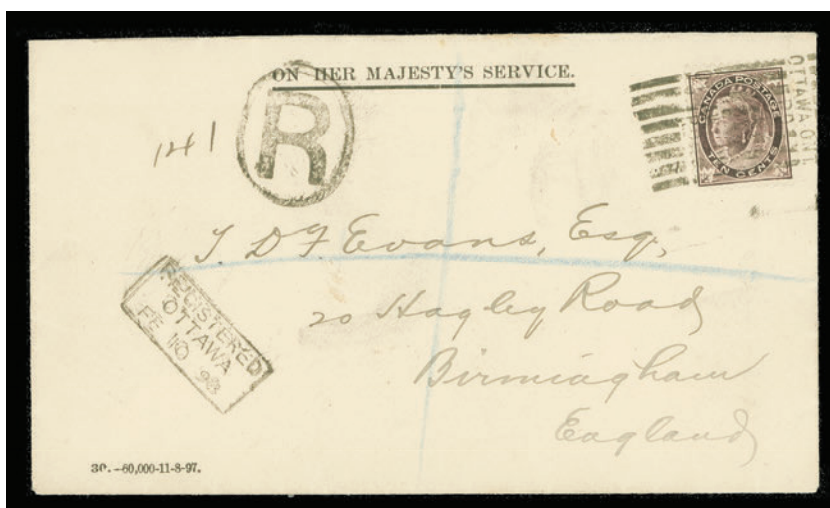 ON HER MAJESTY'S SERVICE.
R
141
CANADA POSTAGE
TEN CENTS
OTTAWA ONT
T. D. F. Evans, Esq,
20 Hagley Road
Birmingham
England
REGISTERED
OTTAWA
FE 10 98
30.-60,000-11-8-97.